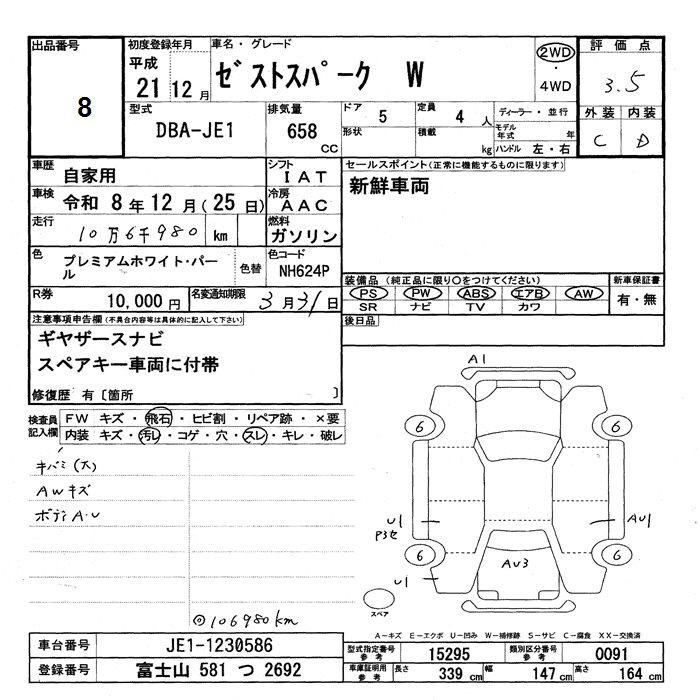 出品番号
8
初度登録年月
平成
21 12 月
車名・グレード
ゼストスパーク W
2WD
・
4WD
評価点
3.5
外装 内装
C D
型式
DBA-JE1
排気量
658
CC
ドア
5
形状
定員
4 人
積載
kg
ディーラー・並行
モデル年式 年
ハンドル 左・右
車歴
自家用
シフト
I A T
車検
令和 8 年 12 月 ( 25 日)
冷房
A A C
走行
10万6千980 km
燃料
ガソリン
色
プレミアムホワイト・パール
色替
色コード
NH624P
R券
10,000 円
名変通知期限
3 月 31 日
セールスポイント(正常に機能するものに限ります)
新鮮車両
装備品 (純正品に限り○をつけてください)
PS PW ABS エアB AW
SR ナビ TV カワ
新車保証書
有・無
後日品
注意事項申告欄(不具合内容等は具体的に記入して下さい)
ギヤザースナビ
スペアキー車両に付帯
修復歴 有〔箇所 〕
検査員記入欄
FW キズ・飛石・ヒビ割・リペア跡・×要
内装 キズ・汚レ・コゲ・穴・スレ・キレ・破レ
キバミ(大)
AWキズ
ボディA・U
◎106980km
A1
6
6
U1
P3セ
AU1
6
6
U1
AU3
スペア
A－キズ E－エクボ U－凹み W－補修跡 S－サビ C－腐食 XX－交換済
車台番号
JE1-1230586
登録番号
富士山 581 つ 2692
型式指定番号
参考
15295
類別区分番号
参考
0091
車庫証明用
参考
長さ
339 cm
幅
147 cm
高さ
164 cm